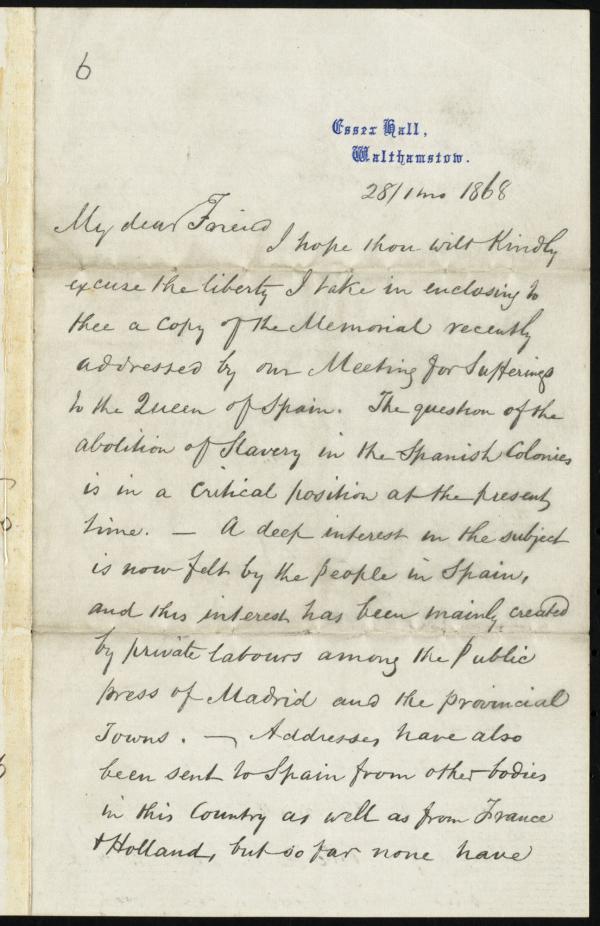 6
Essex Hall,
Walthamstow.
28/1 mo 1868
My dear Friend
I hope thou wilt Kindly
excuse the liberty I take in enclosing to
thee a copy of the Memorial recently
addressed by our Meeting for Sufferings
to the Queen of Spain. The question of the
abolition of Slavery in the Spanish Colonies
is in a critical position at the present
time. — A deep interest in the subject
is now felt by the people in Spain,
and this interest has been mainly created
by private labours among the Public
press of Madrid and the provincial
Towns. — Addresses have also
been sent to Spain from other bodies
in this Country as well as from France
& Holland, but so far none have